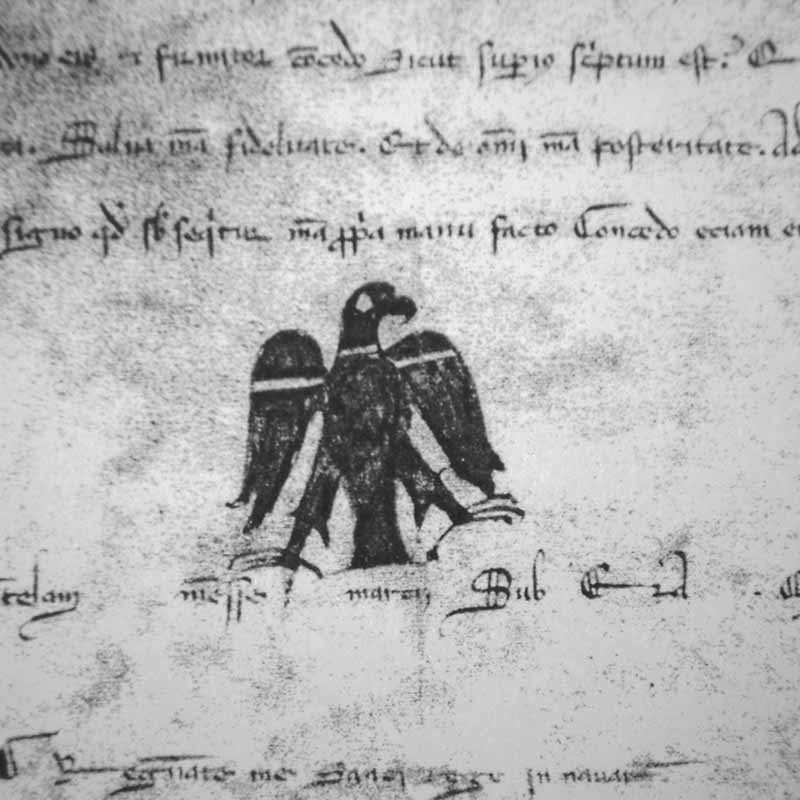 et firmiter c̄cedo Sicut sup̱io sc̓ptum est.
Salua m̄a fidelitate. Et de om̄i m̄a posteritate. Ad
signo qd̓ sb̓seq̓tur m̄a ꝓp̓a manu facto Concedo eciam
telam mēsse marcii Sub Era
me Sancio rege in nauar